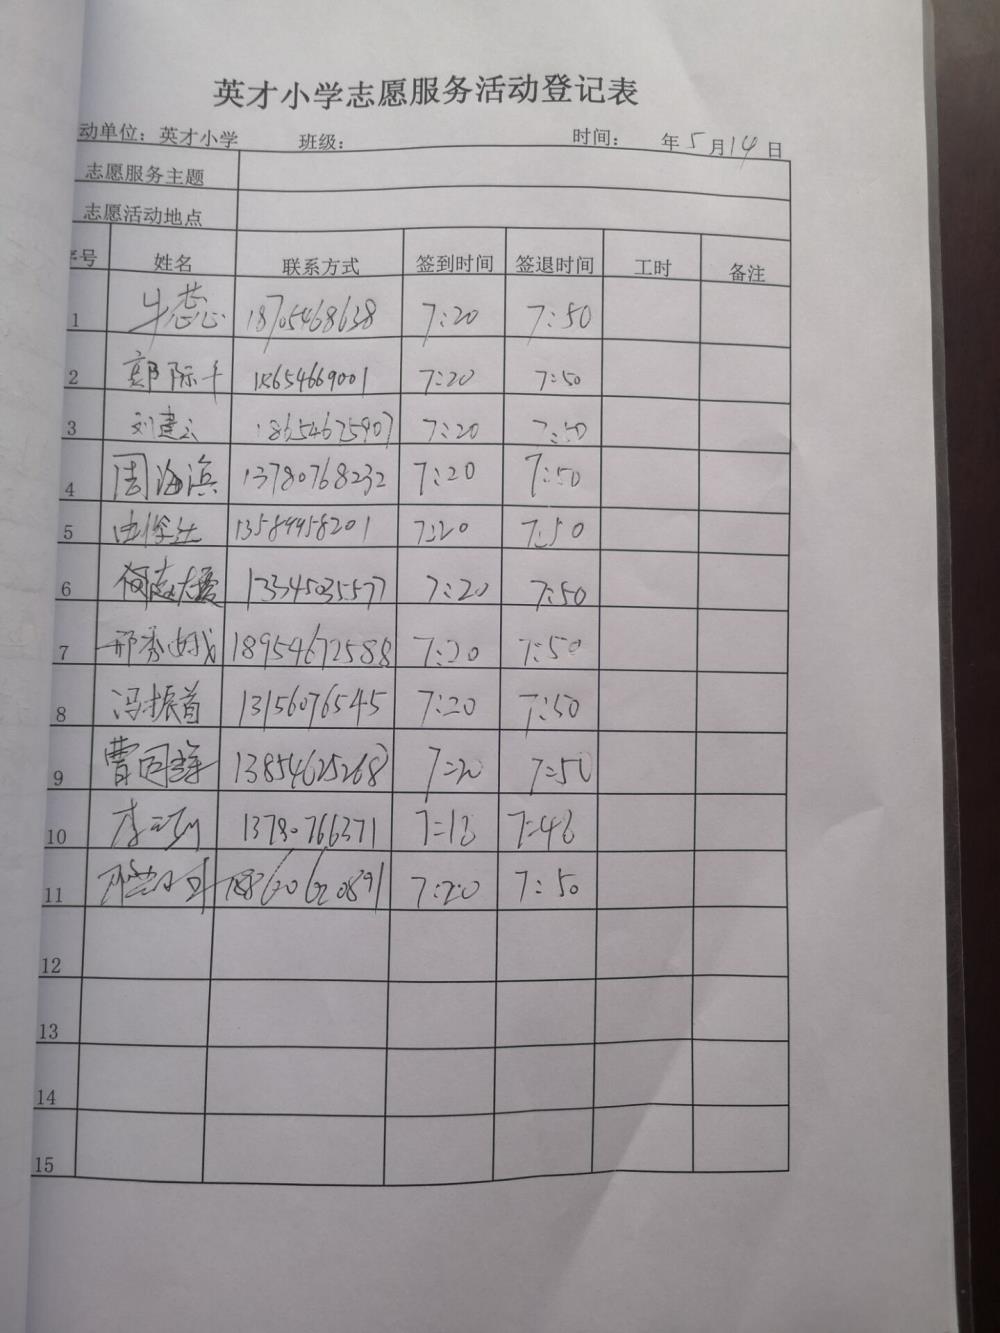 英才小学志愿服务活动登记表
动单位：英才小学 班级： 时间： 年5月14日
志愿服务主题
志愿活动地点
序号 姓名 联系方式 签到时间 签退时间 工时 备注
1 牛蕊 18705468638 7:20 7:50
2 郭际平 18654669001 7:20 7:50
3 刘建云 18654675907 7:20 7:50
4 周海滨 13780768232 7:20 7:50
5 13589958201 7:20 7:50
6 13345035577 7:20 7:50
7 18954672588 7:20 7:50
8 冯振首 13156076545 7:20 7:50
9 13854625268 7:20 7:50
10 13780766371 7:18 7:48
11 7:20 7:50
12
13
14
15